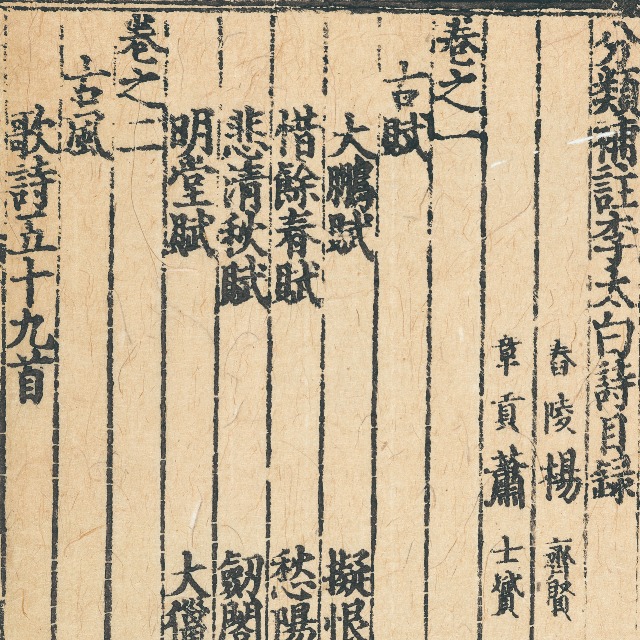 分類補註李太白詩目錄
舂陵楊齊賢
章貢蕭士贇
卷之一
古賦
大鵬賦 擬恨
惜餘春賦 愁陽
悲清秋賦 劒閣
明堂賦 大獵
卷之二
古風
歌詩五十九首